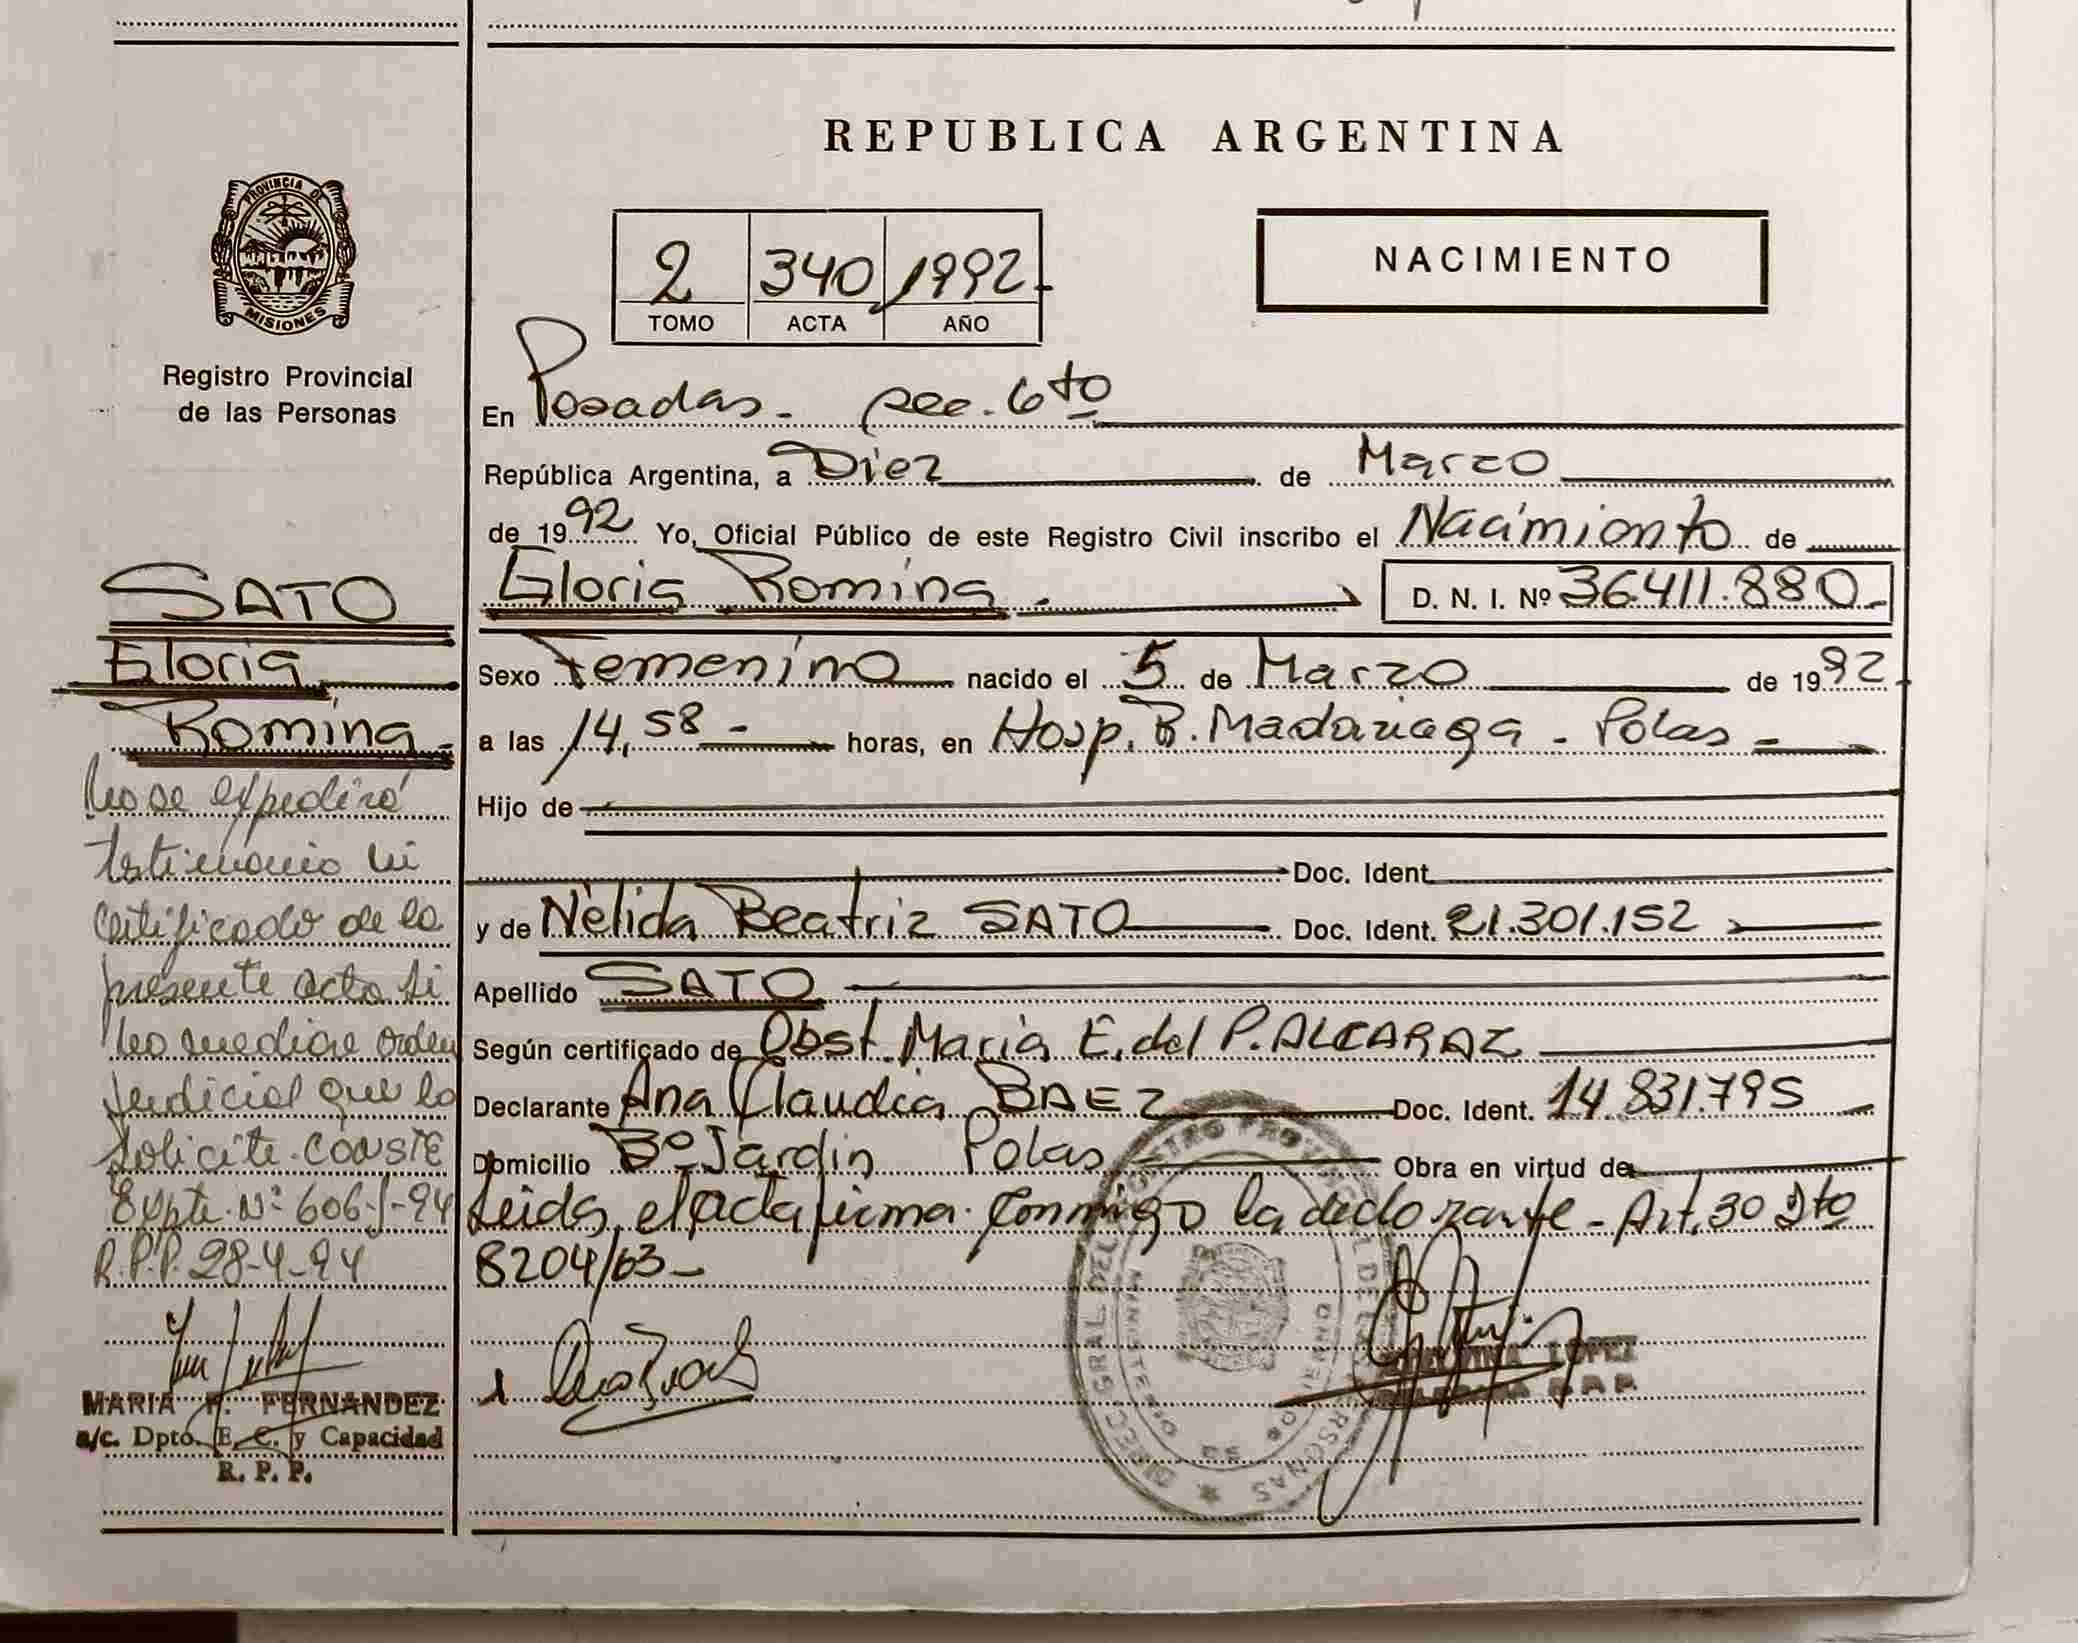 REPUBLICA ARGENTINA
PROVINCIA DE
MISIONES
Registro Provincial
de las Personas
2 340 1992
TOMO ACTA AÑO
NACIMIENTO
En Posadas - sec. 6to
República Argentina, a Diez de Marzo
de 1992 Yo, Oficial Público de este Registro Civil inscribo el Nacimiento de
Gloria Romina. D. N. I. Nº 36.411.880-
Sexo Femenino nacido el 5 de Marzo de 1992
a las 14,58- horas, en Hosp. R. Madariaga - Pdas -
Hijo de
Doc. Ident.
y de Nélida Beatriz SATO Doc. Ident. 21.301.152
Apellido SATO
Según certificado de Obst. Maria E. del P. ALCARAZ
Declarante Ana Claudia BAEZ Doc. Ident. 14.831.795
Domicilio Bº Jardin Pdas Obra en virtud de
Leida el acta firma conmigo la declarante - Art. 30 Dto
8204/63-
SATO
Gloria
Romina.
No se expedirá
testimonio ni
certificado de la
presente acta si
no mediare orden
Judicial que lo
solicite. CONSTE
Expte. Nº 606-J-94
R.P.P. 28-4-94
MARIA FERNANDEZ
a/c. Dpto. E. C. y Capacidad
R. P. P.
LOPEZ